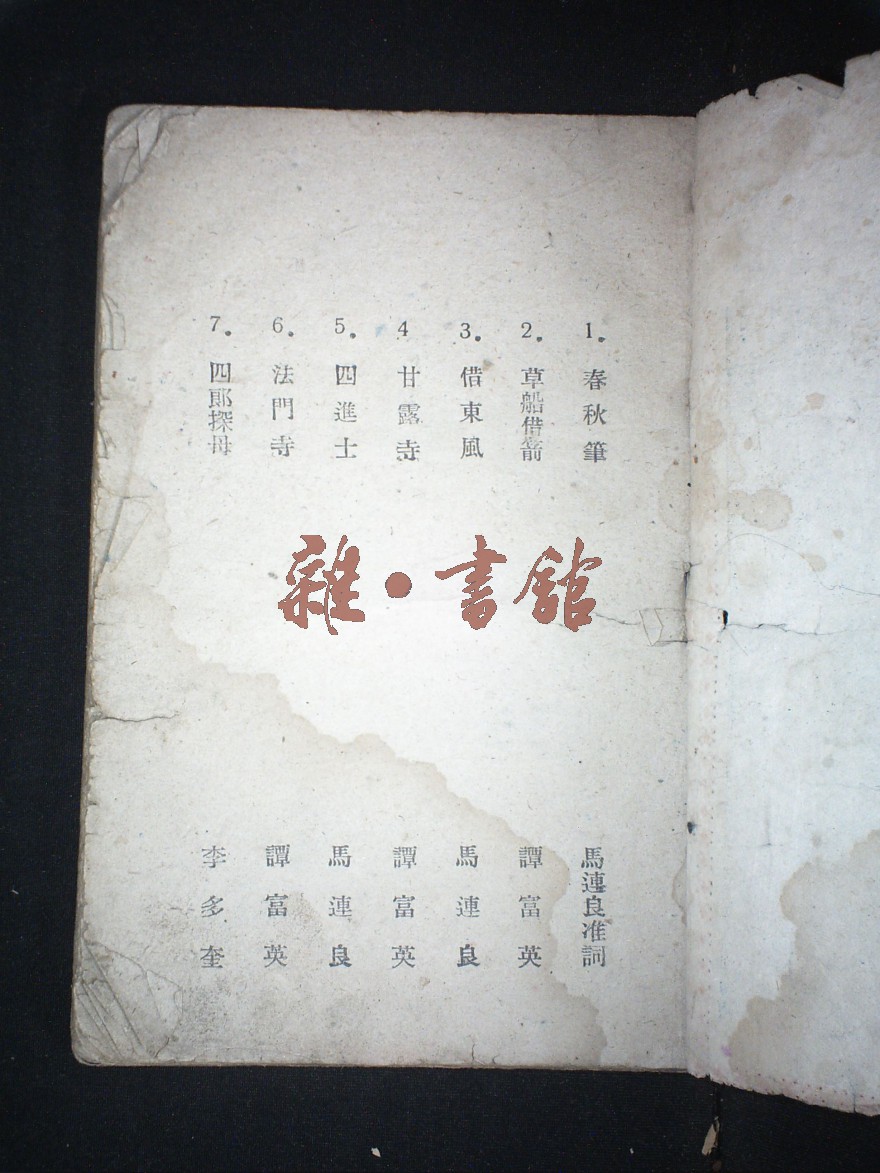 1. 春秋筆 馬連良准詞
2. 草船借箭 譚富英
3. 借東風 馬連良
4 甘露寺 譚富英
5. 四進士 馬連良
6. 法門寺 譚富英
7. 四郎探母 李多奎
雜·書館